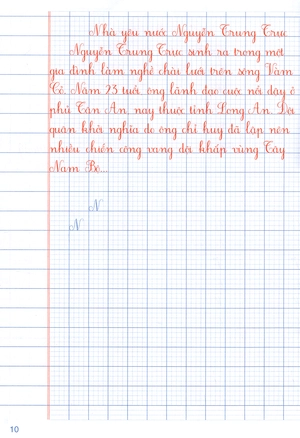 Nhà yêu nước Nguyễn Trung Trực
Nguyễn Trung Trực sinh ra trong một
gia đình làm nghề chài lưới trên sông Vàm
Cỏ. Năm 23 tuổi, ông lãnh đạo cuộc nổi dậy ở
phủ Tân An nay thuộc tỉnh Long An. Đội
quân khởi nghĩa do ông chỉ huy đã lập nên
nhiều chiến công vang dội khắp vùng Tây
Nam Bộ...
N
N
10